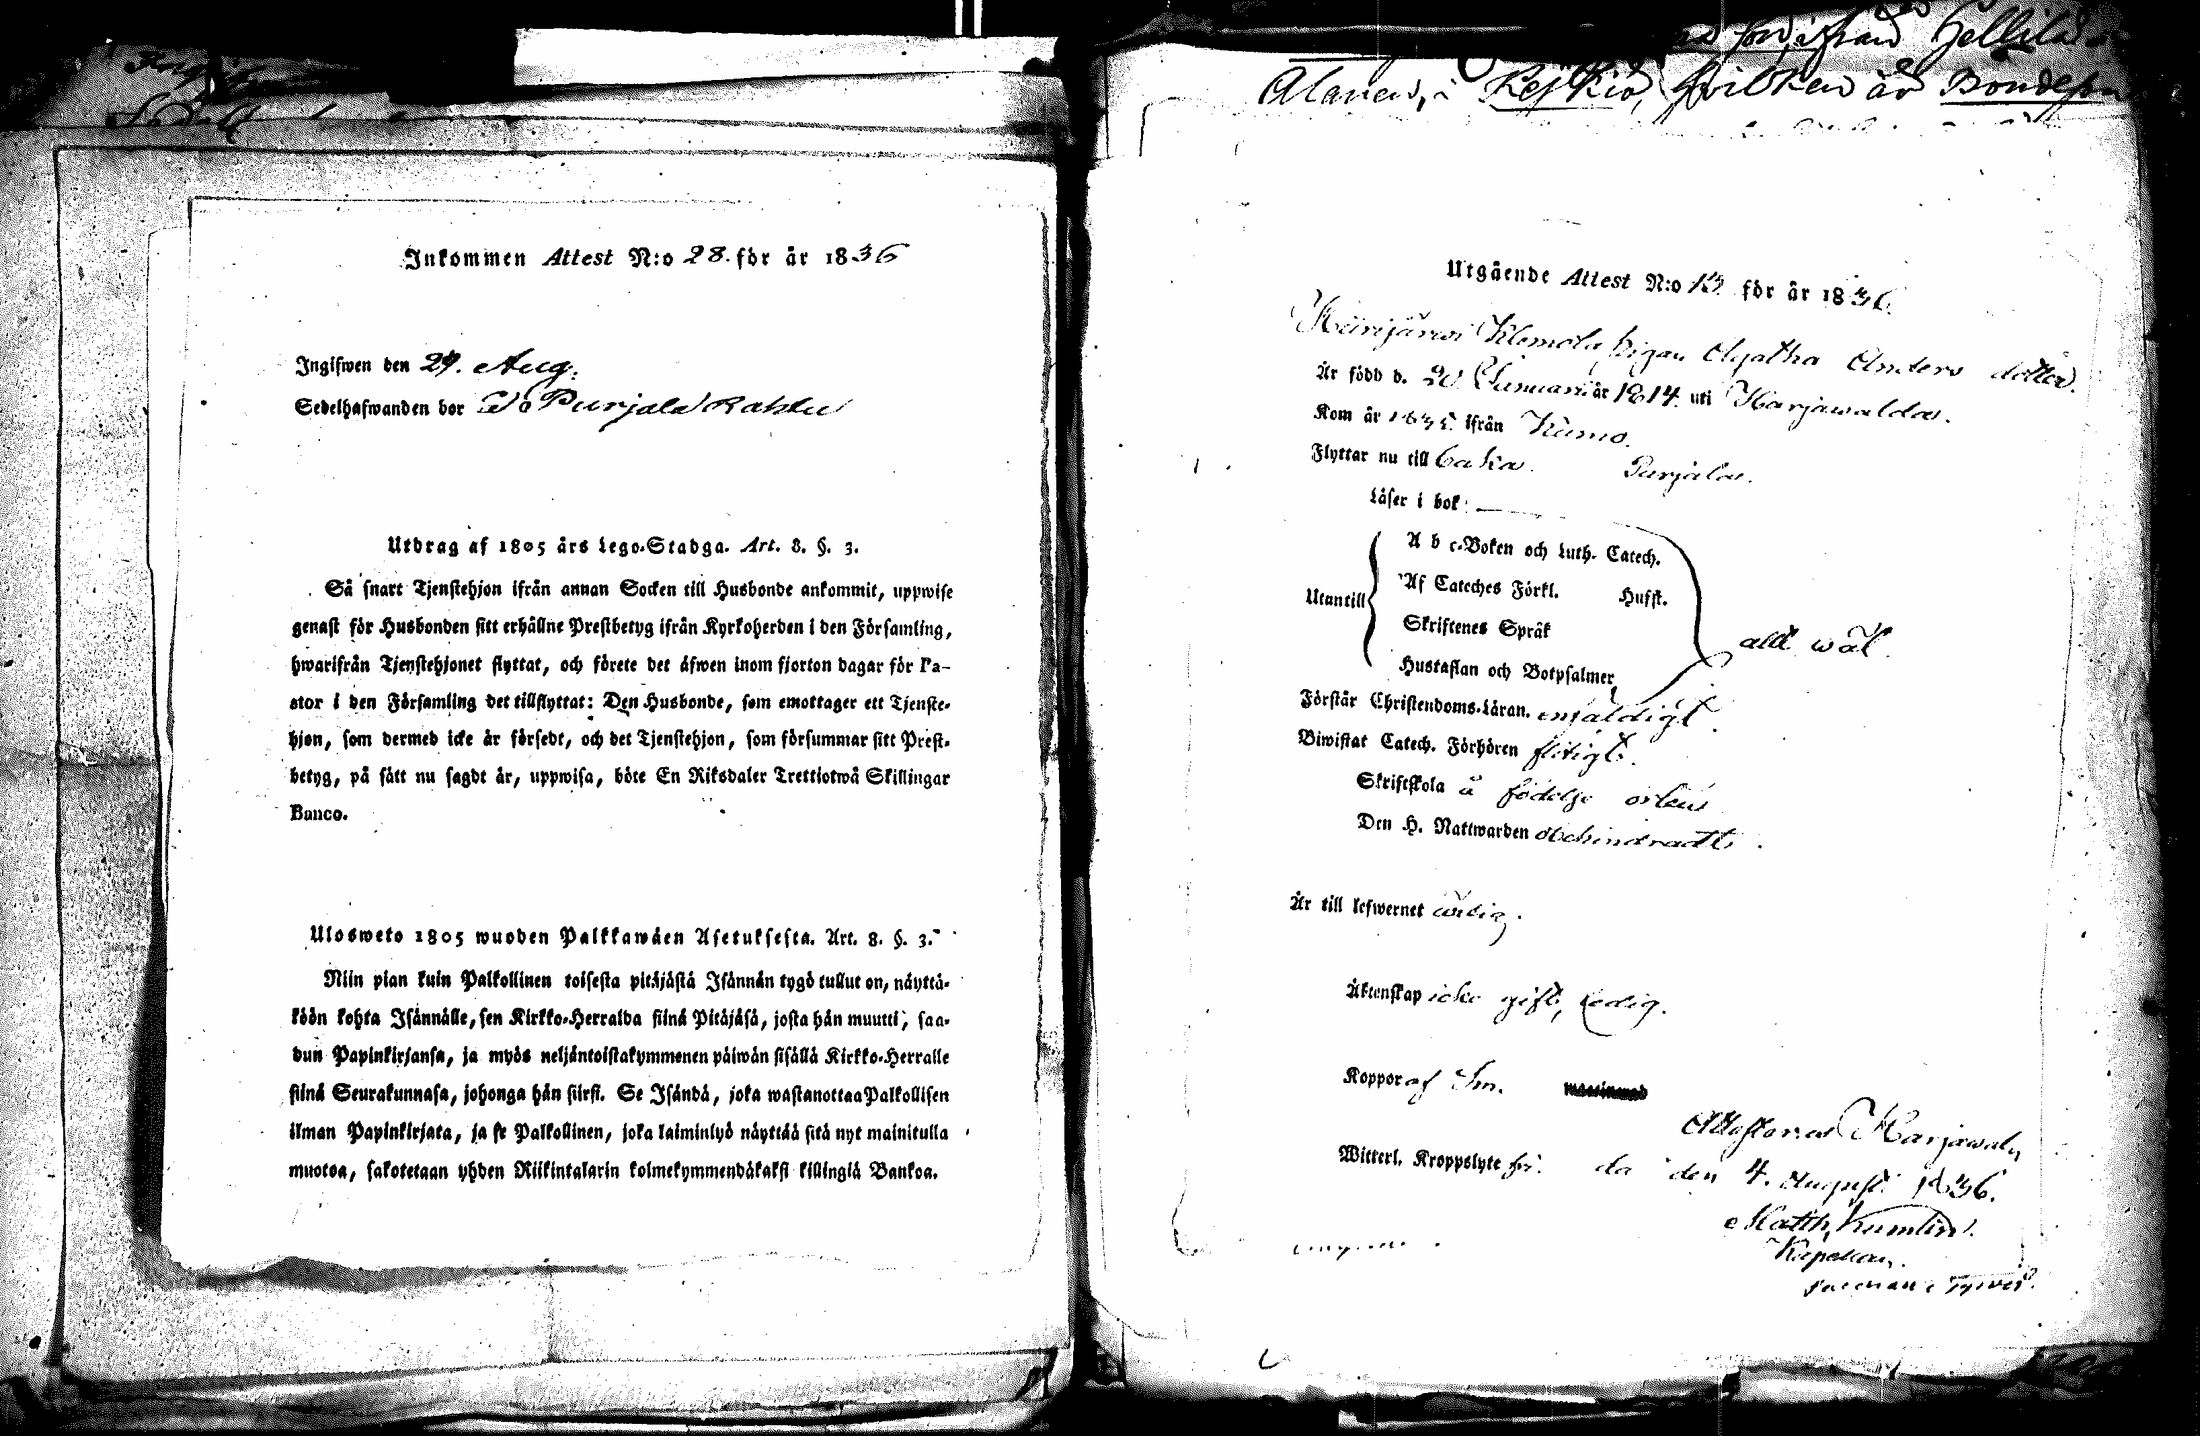 Inkommen Attest N:o 28. för år 1836
Ingifwen den 29. Aug.
Sedelhafwanden bor På Purjala Rakku
Utdrag af 1805 års Lego-Stadga. Art. 8. §. 3.
Så snart Tjenstehjon ifrån annan Socken till Husbonde ankommit, uppwise
genast för Husbonden sitt erhållne Prestbetyg ifrån Kyrkoherden i den Församling,
hwarifrån Tjenstehjonet flyttat, och förete det äfwen inom fjorton dagar för Pa-
stor i den Församling det tillflyttat: Den Husbonde, som emottager ett Tjenste-
hjon, som dermed icke är försedt, och det Tjenstehjon, som försummar sitt Prest-
betyg, på sätt nu sagdt är, uppwisa, böte En Riksdaler Trettiotwå Skillingar
Banco.
Ulosweto 1805 wuoden Palkkawäen Asetuksesta. Art. 8. §. 3.
Niin pian kuin Palkollinen toisesta pitäjästä Isännän tygö tullut on, näyttä-
köön kohta Isännälle, sen Kirkko-Herralda siinä Pitäjäsä, josta hän muutti, saa-
dun Papinkirjansa, ja myös neljäntoistakymmenen päiwän sisällä Kirkko-Herralle
siinä Seurakunnasa, johonga hän siirsi. Se Isändä, joka wastanottaa Palkollisen
ilman Papinkirjata, ja se Palkollinen, joka laiminlyö näyttää sitä nyt mainitulla
muotoa, sakotetaan yhden Riikintalarin kolmekymmendäkaksi killingiä Bankoa.
ifrån
Alanen, i Keikiö, hvilken är Bondeson
Utgående Attest N:o 13 för år 1836.
Hiirijärwi Klemola pigan Agatha Anders dotter.
Är född d. 20 Januari år 1814. uti Harjawalda.
Kom år 1835 ifrån Kumo.
Flyttar nu till baka. Purjala.
Läser i bok:
A b c-Boken och Luth. Catech.
Af Cateches Förkl. Husst.
Utantill
Skriftenes Språk
alt wäl.
Hustaflan och Botpsalmer
Förstår Christendoms-Läran. enfaldigt.
Biwistat Catech. Förhören flitigt.
Skriftskola å födelse orten
Den H. Nattwarden obehindradt.
Är till lefwernet ärlig.
Äktenskap icke gift, ledig.
Koppor af Sm.
Attesteras Harjawal-
Witterl. Kroppslyte fri. da den 4. Augusti 1836.
Matth. Kumlin.
Kapellan.